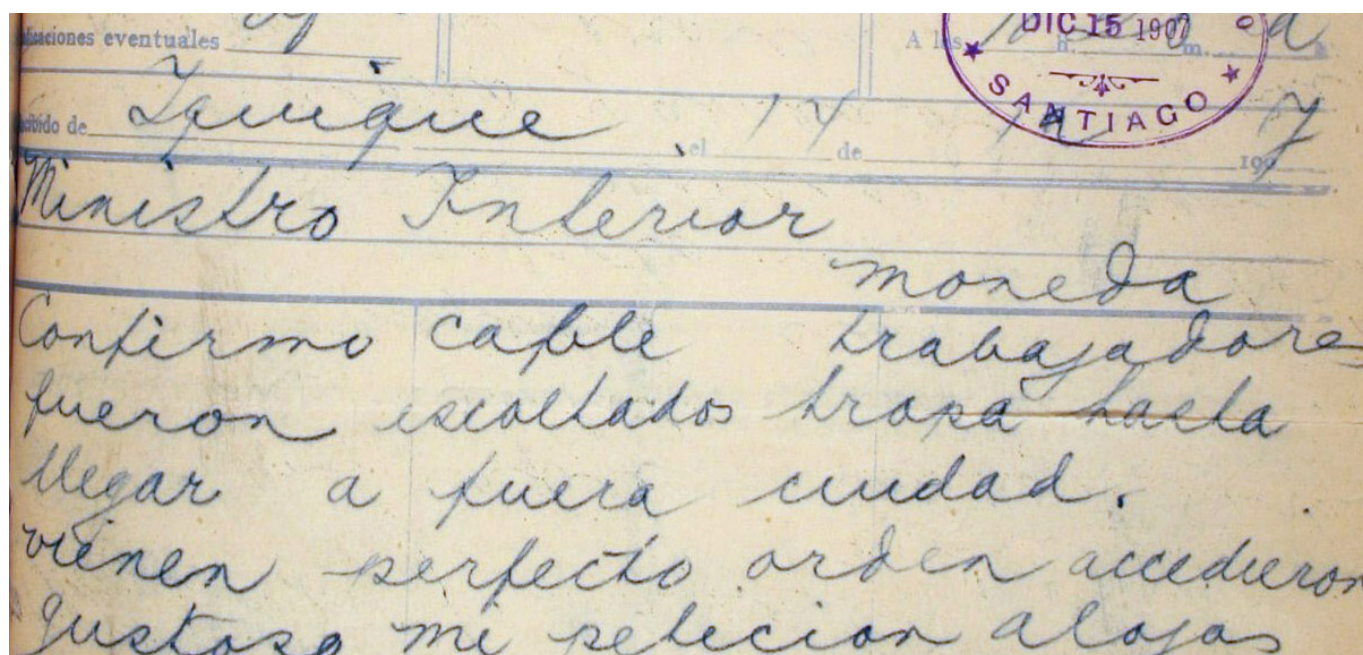 eventuales
A las h. m.
DIC 15 1907
SANTIAGO
de Iquique el 14 de 1907
Ministro Interior
moneda
Confirmo cable trabajadore
fueron escoltados tropa hasta
llegar a fuera ciudad.
vienen perfecto orden accedieron
gustoso mi peticion alojas